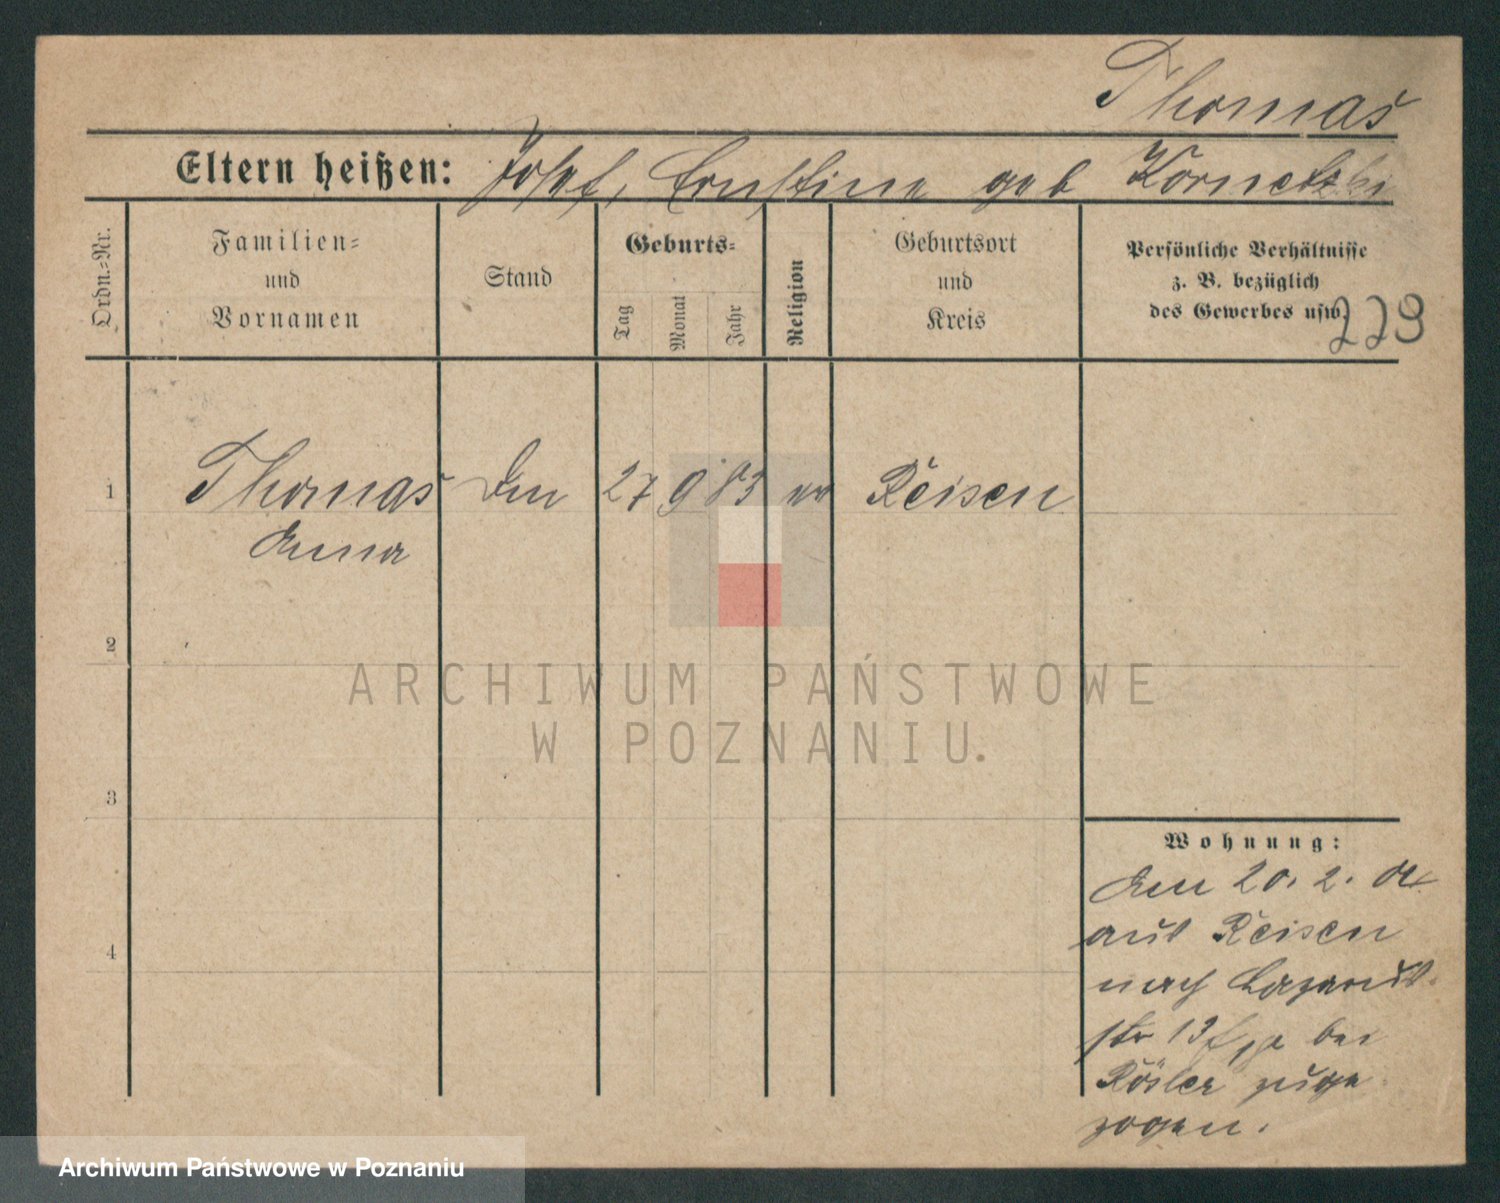 Thomas
Eltern heißen: Josef, Ernstine geb Kornetzki
Ordn.-Nr.
Familien-
und
Vornamen
Stand
Geburts-
Tag
Monat
Jahr
Religion
Geburtsort
und
Kreis
Persönliche Verhältnisse
z. B. bezüglich
des Gewerbes usw.
229
1 Thomas 27 9 83 ev Reisen
Anna
2
3
4
ARCHIWUM PAŃSTWOWE
W POZNANIU.
Wohnung:
20. 2.
aus Reisen
nach Lazarus
str 13 bei
Rösler zuge
zogen.
Archiwum Państwowe w Poznaniu